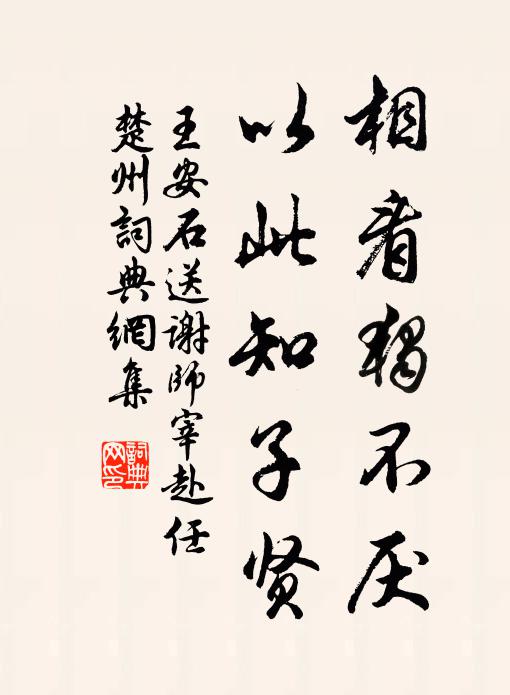 相看独不厌
以此知子贤
王安石送谢師宰赴任
楚州詞典網集
詞典
网印